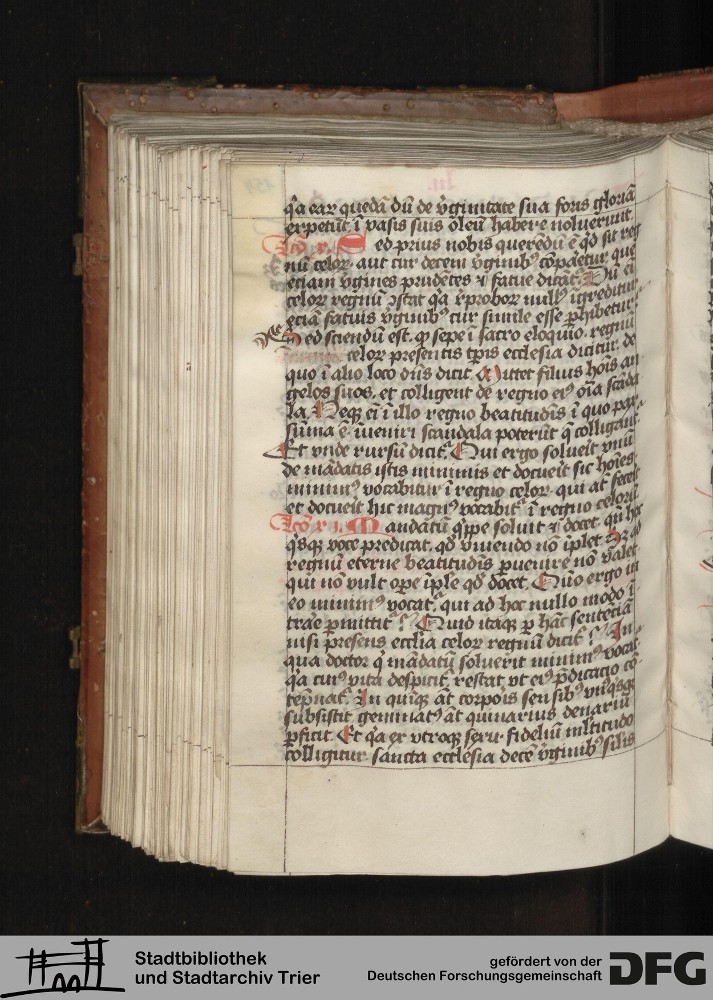 q̄a eaꝝ quedā dū de v̄ginitate sua foris gloriā
expetūt ī vasis suis oleū habere noluerunt
Lc̄o x. Sed prius nobis querēdū ē qd̄ sit reg
nū celoꝝ. aut cur decem v̄ginibꝰ cōpaēt̄ur que
etiam v̄gines prudētes ⁊ fatue dicāt̄. Dū eī
celoꝝ regnū ꝯstat q̄a r̄proboꝝ nullꝰ īgreditur
eciā fatuis v̄ginibꝰ cur simile esse ꝑhibetur
Sed sciendū est. ꝙ sepe ī sacro eloquio. regnū
celoꝝ presentis tp̄is ecclesia dicitur. de
quo ī alio loco dn̄s dicit. Mittet filius hoīs an
gelos suos. et colligent de regno eiꝰ oīa scāda
la. Neqꝫ eī ī illo regno beatitudīs ī quo pax
sūma ē. īveniri scandala poterūt q̄ colligant̄.
Et vnde rursū dicit̄. Qui ergo soluerit vnū
de mādatis istis minimis et docuerit sic hoīes
minimꝰ vocabitur ī regno celoꝝ. qui at̄ fecerit
et docuerit hic magnꝰ vocabit̄ ī regno celorū
Lc̄o xi. Mandatū q̄ippe soluit ⁊ docet. qn̄ hoc
q̄sqꝫ voce predicat. qd̄ viuendo nō īplet Sꝫ ad
regnū eterne beatitudīs ꝑuenire nō valet
qui nō vult oꝑe īple qd̄ docet. Quō ergo in
eo minimꝰ vocat̄. qui ad hoc nullo modo ī
trāe ꝑmittit̄? Quid itaqꝫ ꝑ hāc sentēciā
nisi presens ecclīa celoꝝ regnū dicit̄? In
qua doctor q̄ mādatū soluerit minimꝰ vocat̄.
q̄a cuiꝰ vita despicit̄. restat. vt eiꝰ p̄dicatio cō
tēpnat̄. In quīqꝫ at̄ corpois sensibꝰ vnꝰq̄sqꝫ
subsistit. geminatꝰ at̄ quinarius denariū
ꝑficit. Et q̄a ex vtroqꝫ sexu. fideliū m̄ltitudo
colligitur. sancta ecclesia decē v̄ginibꝰ silīs
Stadtbibliothek
und Stadtarchiv Trier
gefördert von der
Deutschen Forschungsgemeinschaft
DFG